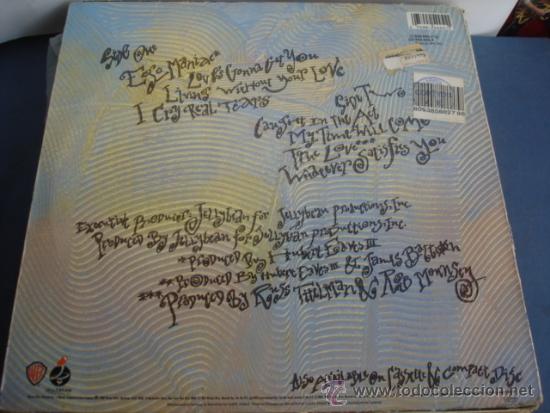 Side One
Ego Maniac
Love's Gonna Get You
Living Without your Love
I Cry Real Tears
Side Two
Caught In The Act
My Time Will Come
The Love...
Whatever Satisfies You
Executive Producer: Jellybean for Jellybean Productions, Inc.
Produced By Jellybean for Jellybean Productions, Inc.
*Produced By Hubert Eaves III
**Produced By Hubert Eaves III & James Batton
***Produced By Russ Titelman & Rob Mounsey
Also Available On Cassette & Compact Disc
todocoleccion